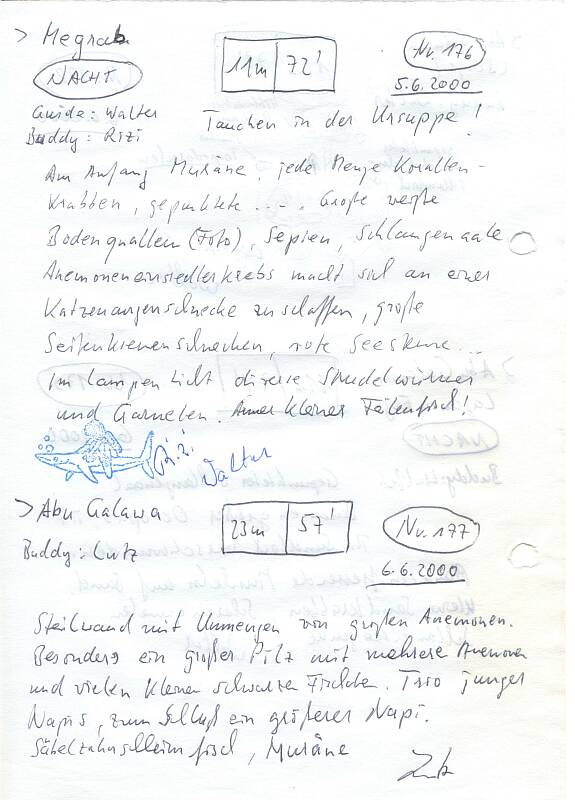 > Megrab
NACHT
11m 72'
Nr. 176
5.6.2000
Guide: Walter
Buddy: Rizi
Tauchen in der Ursuppe!
Am Anfang Muräne, jede Menge Korallen-
krabben, gepunktete ---. Große weiße
Bodenquallen (Foto), Sepien, Schlangenaale
Anemoneneinsiedlerkrebs macht sich an einer
Katzenaugenschnecke zu schaffen, große
Seitenkiemenschnecken, rote Seesterne...
Im Lampenlicht diverse Strudelwürmer
und Garnelen. kleiner Feilenfisch!
Rizi
Walter
> Abu Galawa
23m 57'
Nr. 177
6.6.2000
Buddy: Lutz
Steilwand mit Unmengen von großen Anemonen.
Besonders ein großer Pilz mit mehrere Anemonen
und vielen kleinen schwarzen Fischchen. Trio junger
Napis, zum Schluß ein größerer Napi.
Säbelzahnschleimfisch, Muräne
Lutz